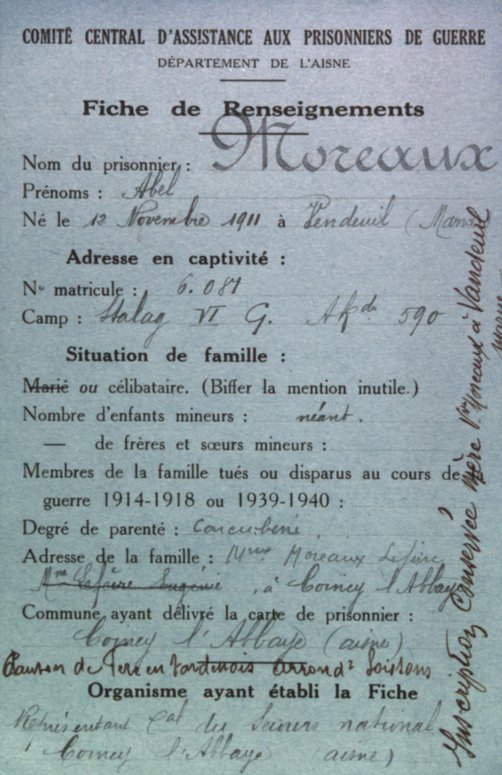 COMITÉ CENTRAL D'ASSISTANCE AUX PRISONNIERS DE GUERRE
DÉPARTEMENT DE L'AISNE
Fiche de Renseignements
Nom du prisonnier : Moreaux
Prénoms : Abel
Né le 12 Novembre 1911 à Vendeuil (Marne
Adresse en captivité :
No matricule : 6.081
Camp : Stalag VI G. AKdo 590
Situation de famille :
Marié ou célibataire. (Biffer la mention inutile.)
Nombre d'enfants mineurs : néant.
— de frères et sœurs mineurs :
Membres de la famille tués ou disparus au cours de
guerre 1914-1918 ou 1939-1940 :
Degré de parenté : Concubine
Adresse de la famille : Mme Moreaux Lefèvre
Mme Lefèvre Eugénie, à Coincy l'Abbaye
Commune ayant délivré la carte de prisonnier :
Coincy l'Abbaye (aisne)
Canton de Fère en Tardenois Arrondt Soissons
Organisme ayant établi la Fiche
Représentant Cal du Secours national
Coincy l'Abbaye aisne)
Inscription conservée Mère Vve Moreaux à Vandeuil